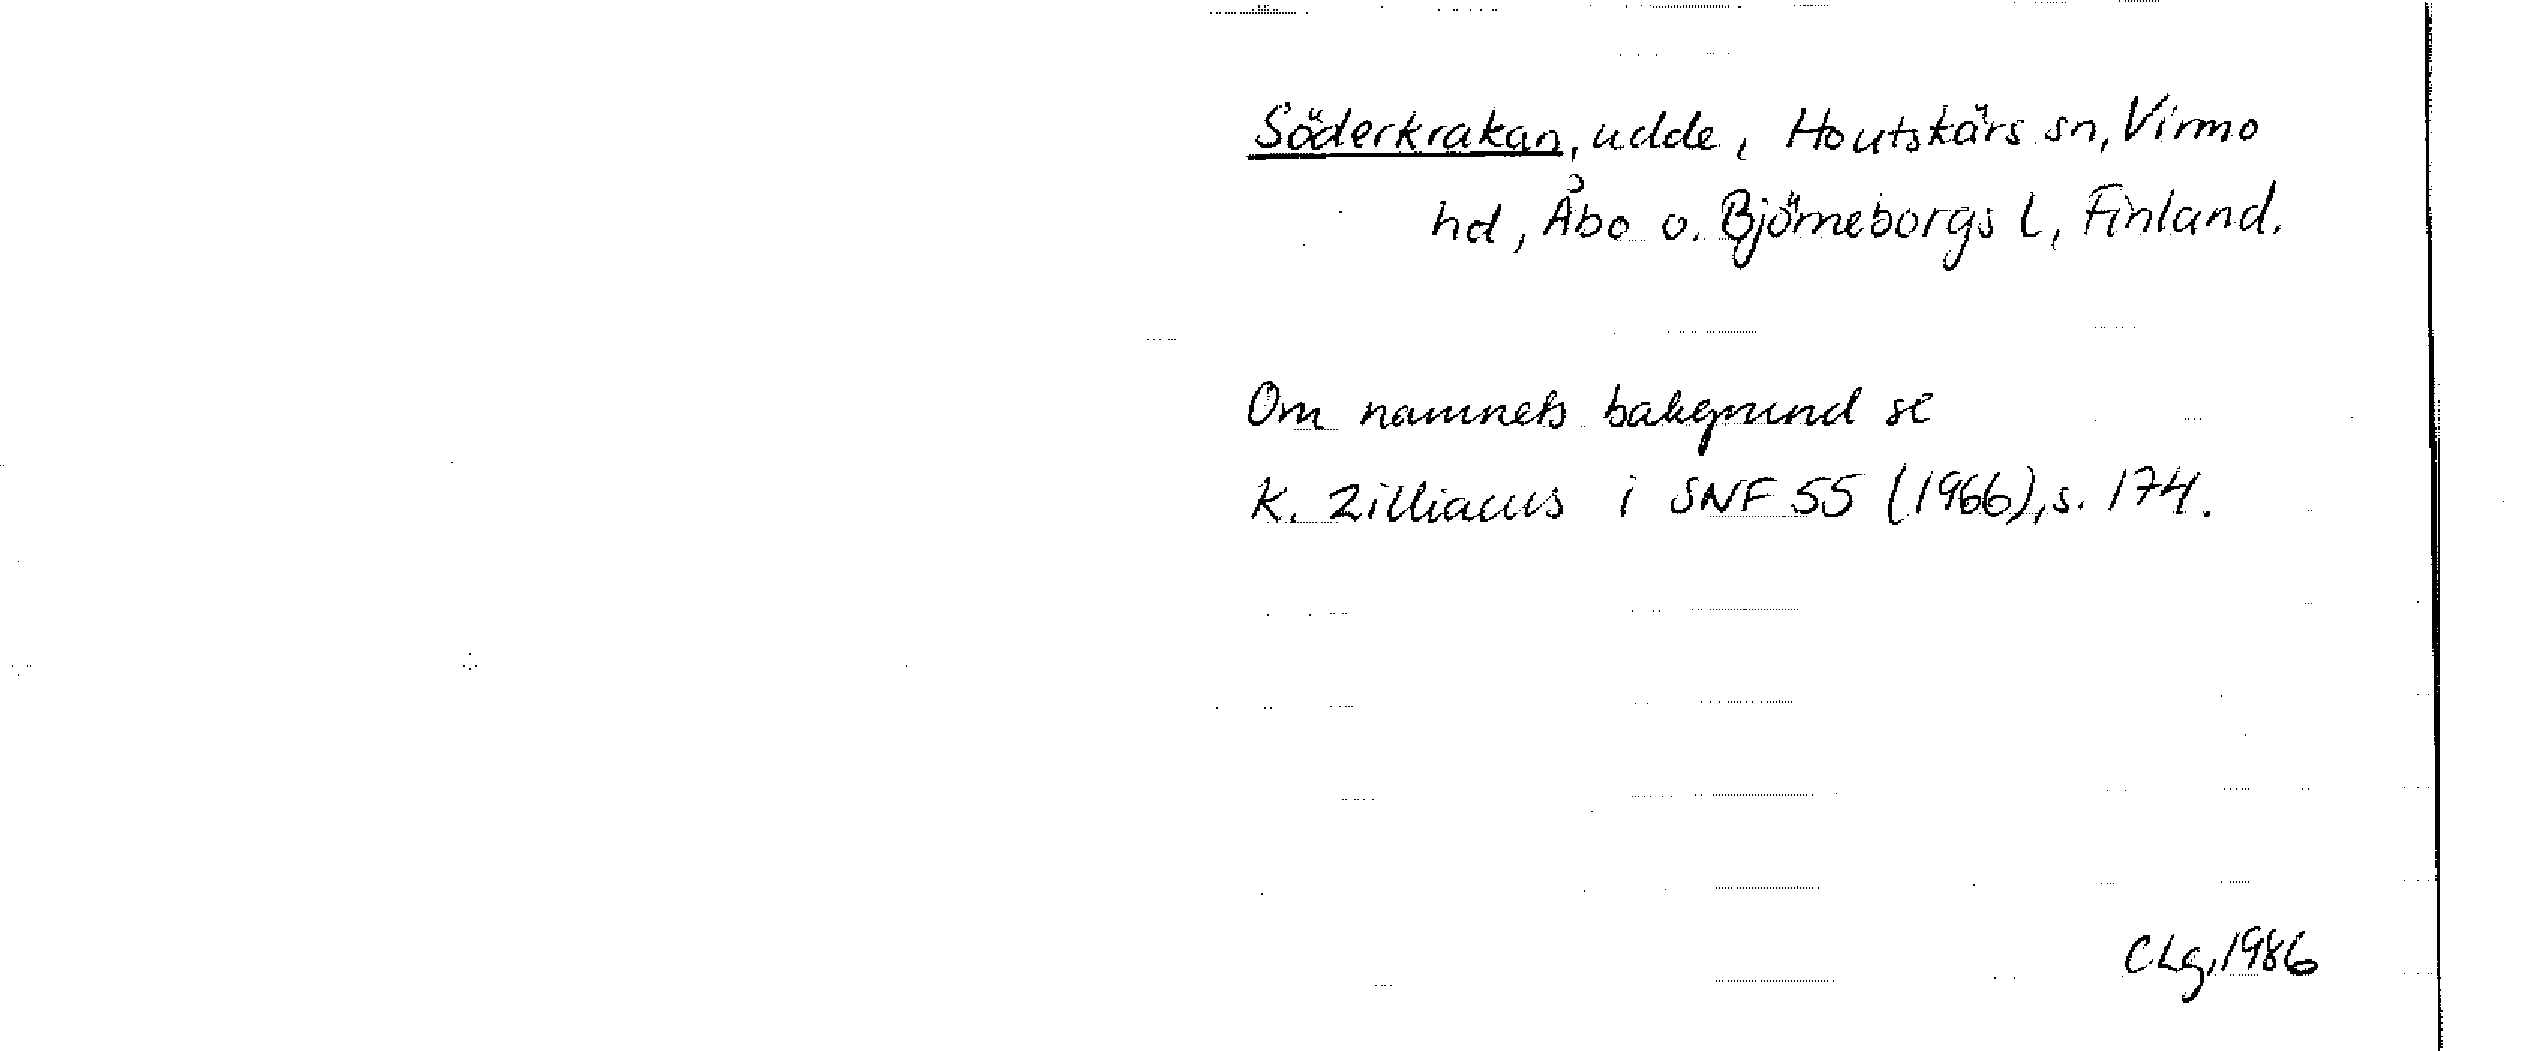 Söderkrakan, udde, Houtskärs sn, Virmo
hd, Åbo o. Björneborgs l, Finland.
Om namnets bakgrund se
K. Zilliacus i SNF 55 (1966), s. 174.
CLg, 1986